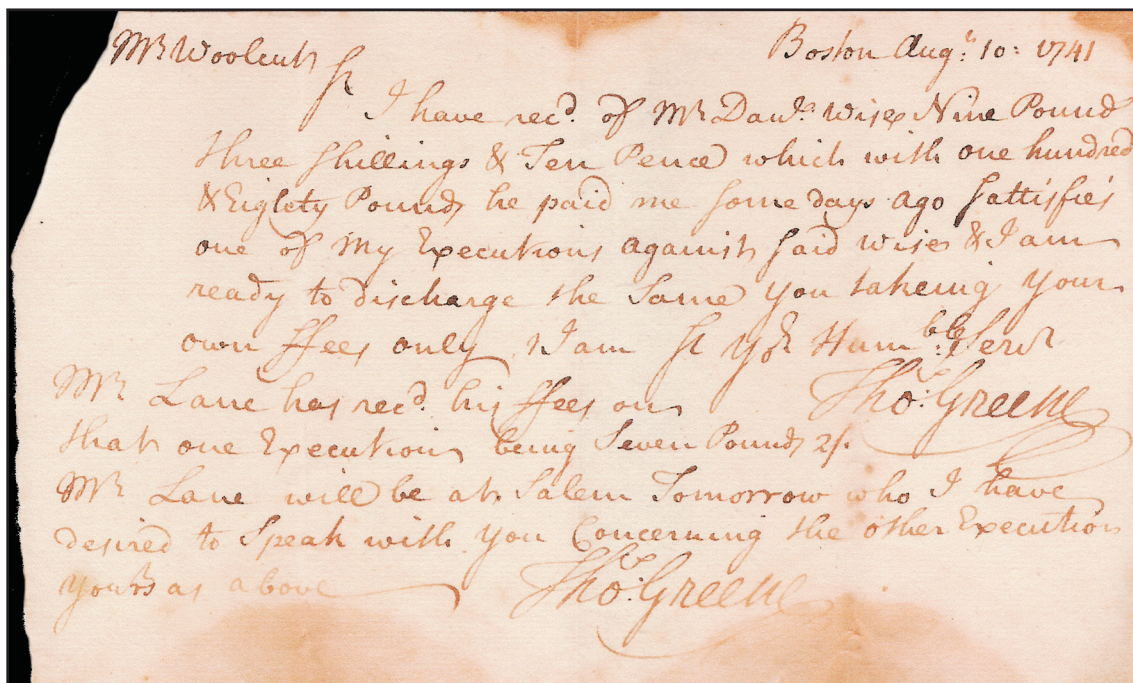 Mr. Woolcutt Boston Augt. 10: 1741
Sr
I have recd. of Mr. Danl. Wise Nine Pound
three Shillings & Ten Pence which with one hundred
& Eighty Pounds he paid me Some days ago Sattisfies
one of my Executions against Said Wise & I am
ready to discharge the Same you takeing your
own ffees only I am Sr. Yor. Humble. Servt
Thos. Greene
Mr. Lane has recd. his ffees on
that one Execution being Seven Pounds 2/.
Mr. Lane will be at Salem Tomorrow who I have
desired to Speak with you Concerning the other Execution
yours as above Thos. Greene